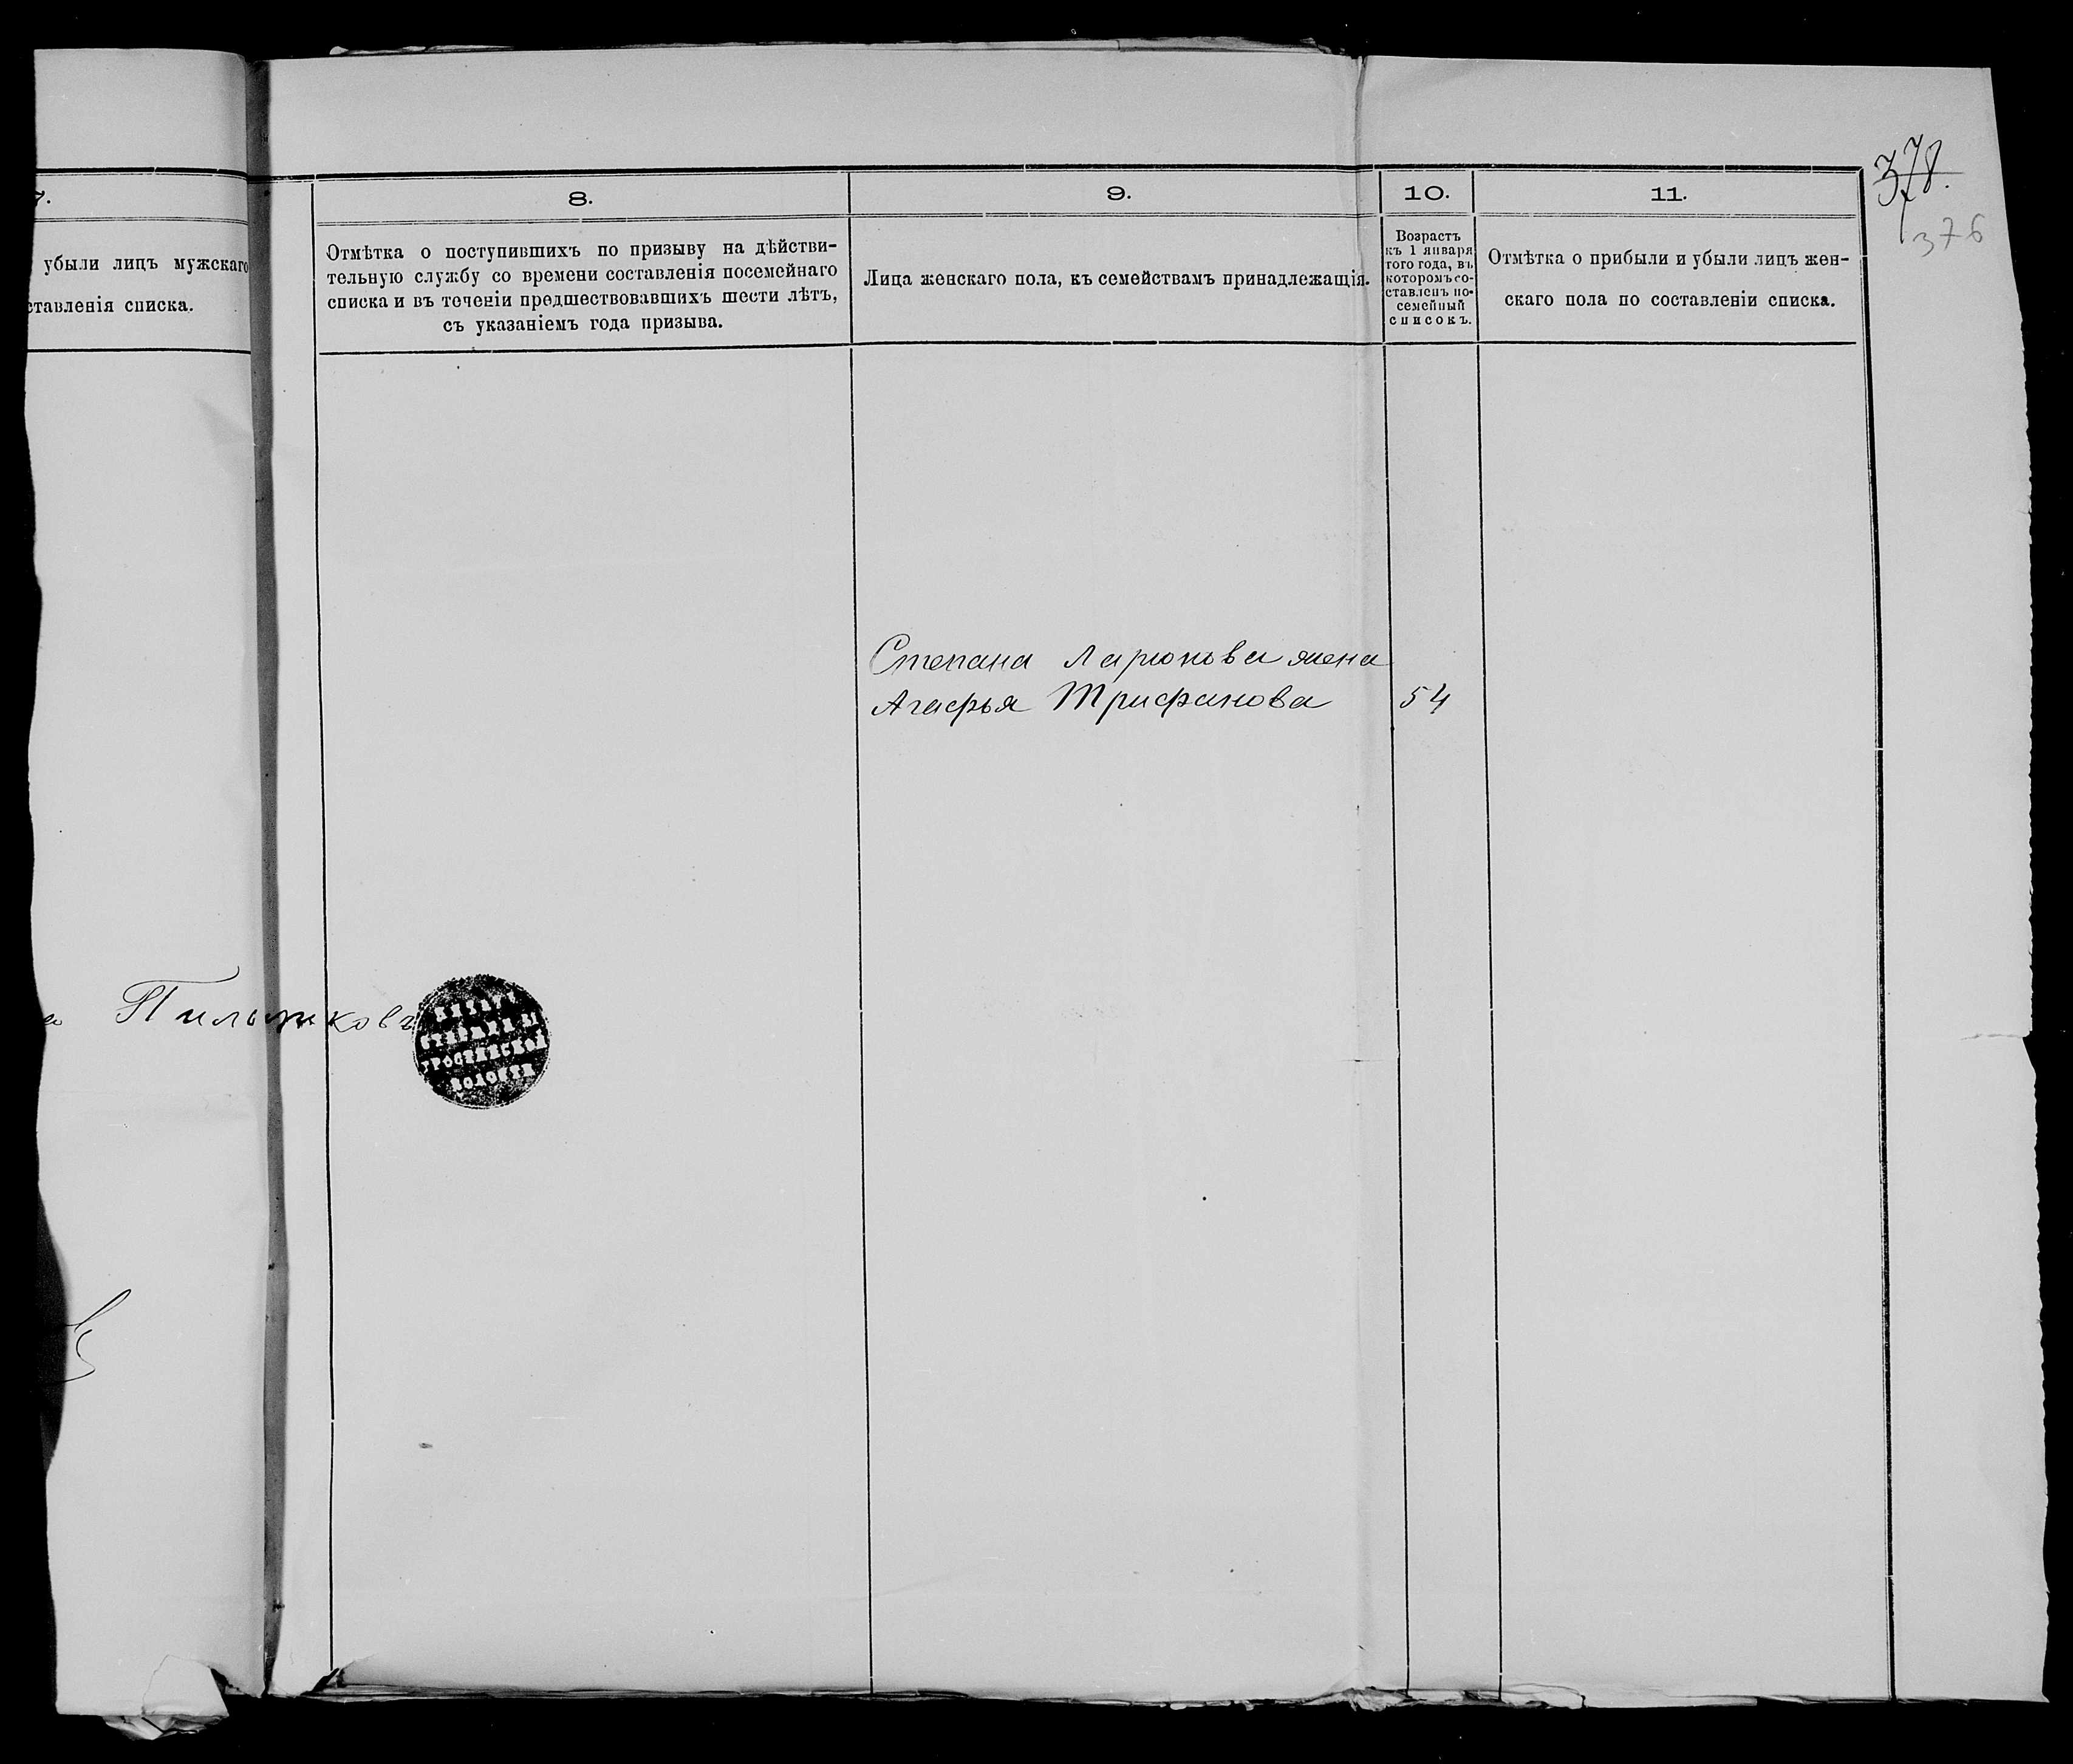 378.
376
7.
убыли лицъ мужскаго
ставленія списка.
8.
Отмѣтка о поступившихъ по призыву на дѣйстви-
тельную службу со времени составленія посемейнаго
списка и въ теченіи предшествовавшихъ шести лѣтъ,
съ указаніемъ года призыва.
9.
Лица женскаго пола, къ семействамъ принадлежащія.
10.
Возрастъ
къ 1 января
того года, въ
которомъ со-
ставленъ по-
семейный
списокъ.
11.
Отмѣтка о прибыли и убыли лицъ жен-
скаго пола по составленіи списка.
Степана Ларионова жена
Агафья Трифанова 54
волости